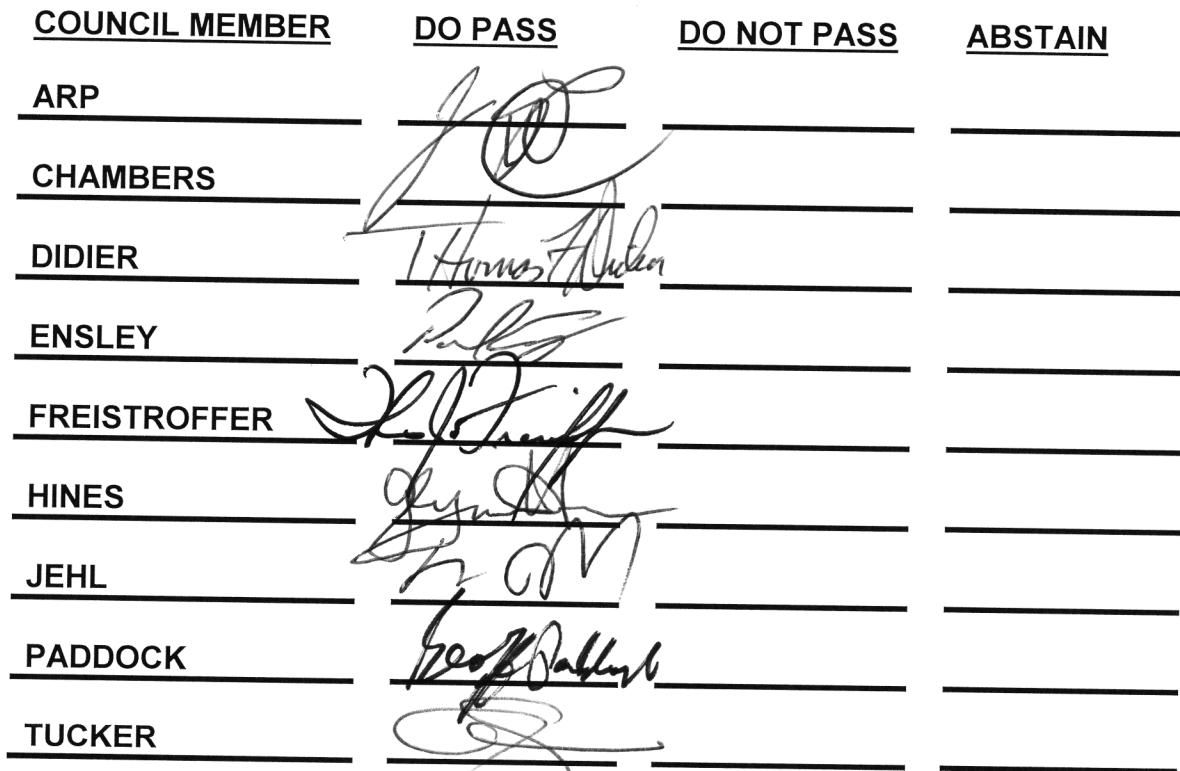 COUNCIL MEMBER DO PASS DO NOT PASS ABSTAIN
ARP
CHAMBERS
DIDIER Thomas F Didier
ENSLEY
FREISTROFFER
HINES Glynn
JEHL
PADDOCK Geoff Paddock
TUCKER